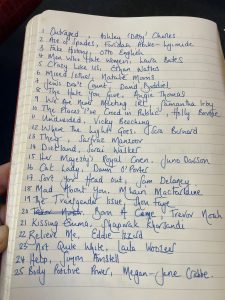 1 Outraged, Ashley 'Dotty' Charles
2 Ace of Spades, Faridah Àbíké-Íyímídé
3 Fake History, Otto English
4 Men Who Hate Women, Laura Bates
5 Crazy Like Us, Ethan Watters
6 Mixed Other, Natalie Morris
7 Jews Don't Count, David Baddiel
8 The Hate You Give, Angie Thomas
9 We Are Never Meeting IRL, Samantha Irby
10 The Places I've Cried in Public, Holly Bourne
11 Undivided, Vicky Beeching
12 Where The Light Goes, Sara Barnard
13 They, Sarfraz Manzoor
14 Dietland, Sarai Walker
15 Her Majesty's Royal Coven, Juno Dawson
16 Cat Lady, Dawn O'Porter
17 Sort Your Head Out, Sam Delaney
18 Mad About You, Mhairi McFarlane
19 The Transgender Issue, Shon Faye
20 Born A Crime, Trevor Noah
21 Kissing Emma, Shappi Khorsandi
22 Believe Me, Eddie Izzard
23 Not Quite White, Laila Woozeer
24 Help, Simon Amstell
25 Body Positive Power, Megan-Jane Crabbe